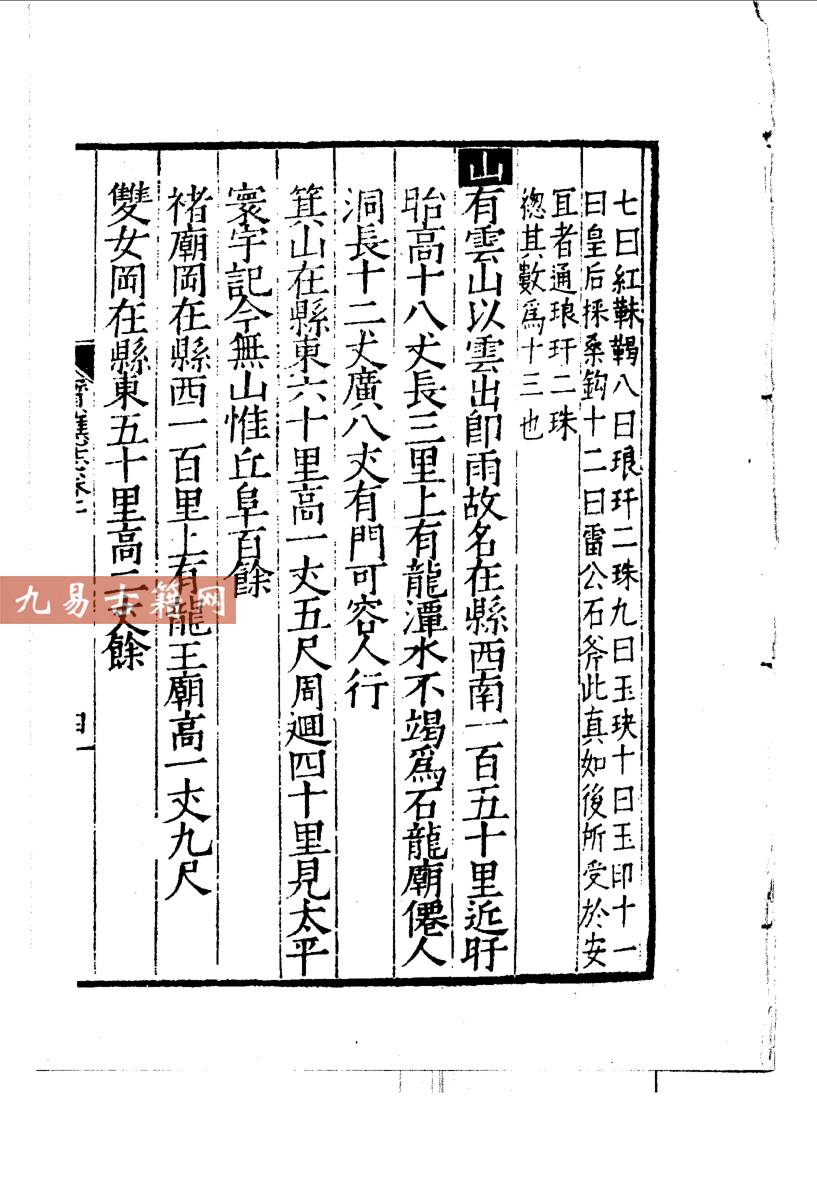 七曰紅靺鞨八曰琅玕二珠九曰玉玦十曰玉印十一
曰皇后採桑鈎十二曰雷公石斧此真如後所受於安
冝者通琅玕二珠
緫其數爲十三也
山
有雲山以雲出即雨故名在縣西南一百五十里近盱
眙高十八丈長三里上有龍潭水不竭爲石龍廟僊人
洞長十二丈廣八丈有門可容人行
箕山在縣東六十里高一丈五尺周迴四十里見太平
寰宇記今無山惟丘阜百餘
褚廟岡在縣西一百里上有龍王廟高一丈九尺
雙女岡在縣東五十里高二丈餘
九易古籍网